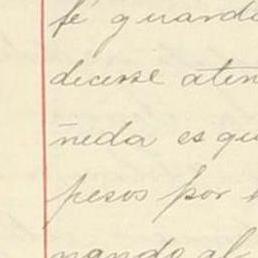 fé guardo
decirse aten
ñeda es qu
pesos por
nando al